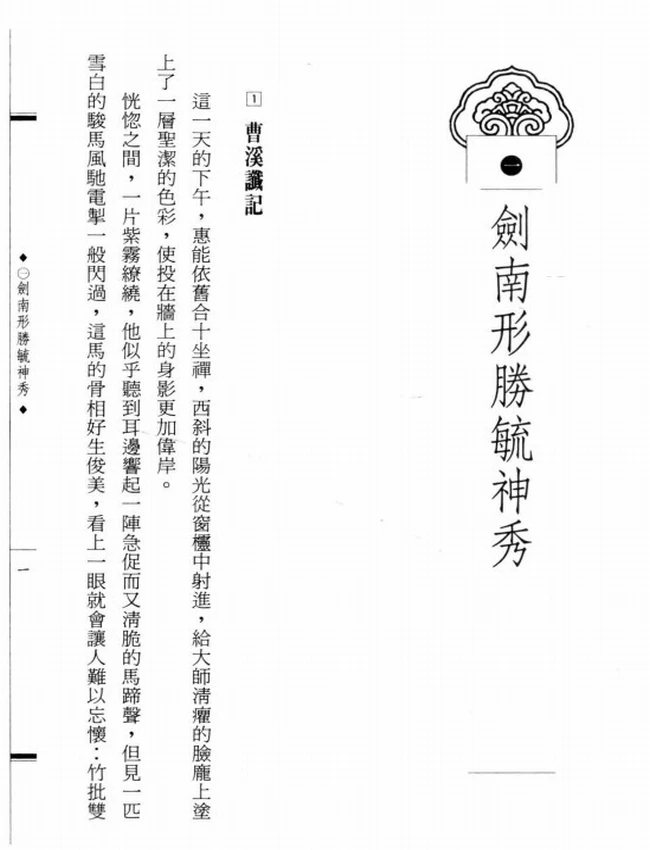 一
劍南形勝毓神秀
1 曹溪讖記
這一天的下午，惠能依舊合十坐禪，西斜的陽光從窗欞中射進，給大師清癯的臉龐上塗
上了一層聖潔的色彩，使投在牆上的身影更加偉岸。
恍惚之間，一片紫霧繚繞，他似乎聽到耳邊響起一陣急促而又清脆的馬蹄聲，但見一匹
雪白的駿馬風馳電掣一般閃過，這馬的骨相好生俊美，看上一眼就會讓人難以忘懷：竹批雙
◆㊀劍南形勝毓神秀◆
一